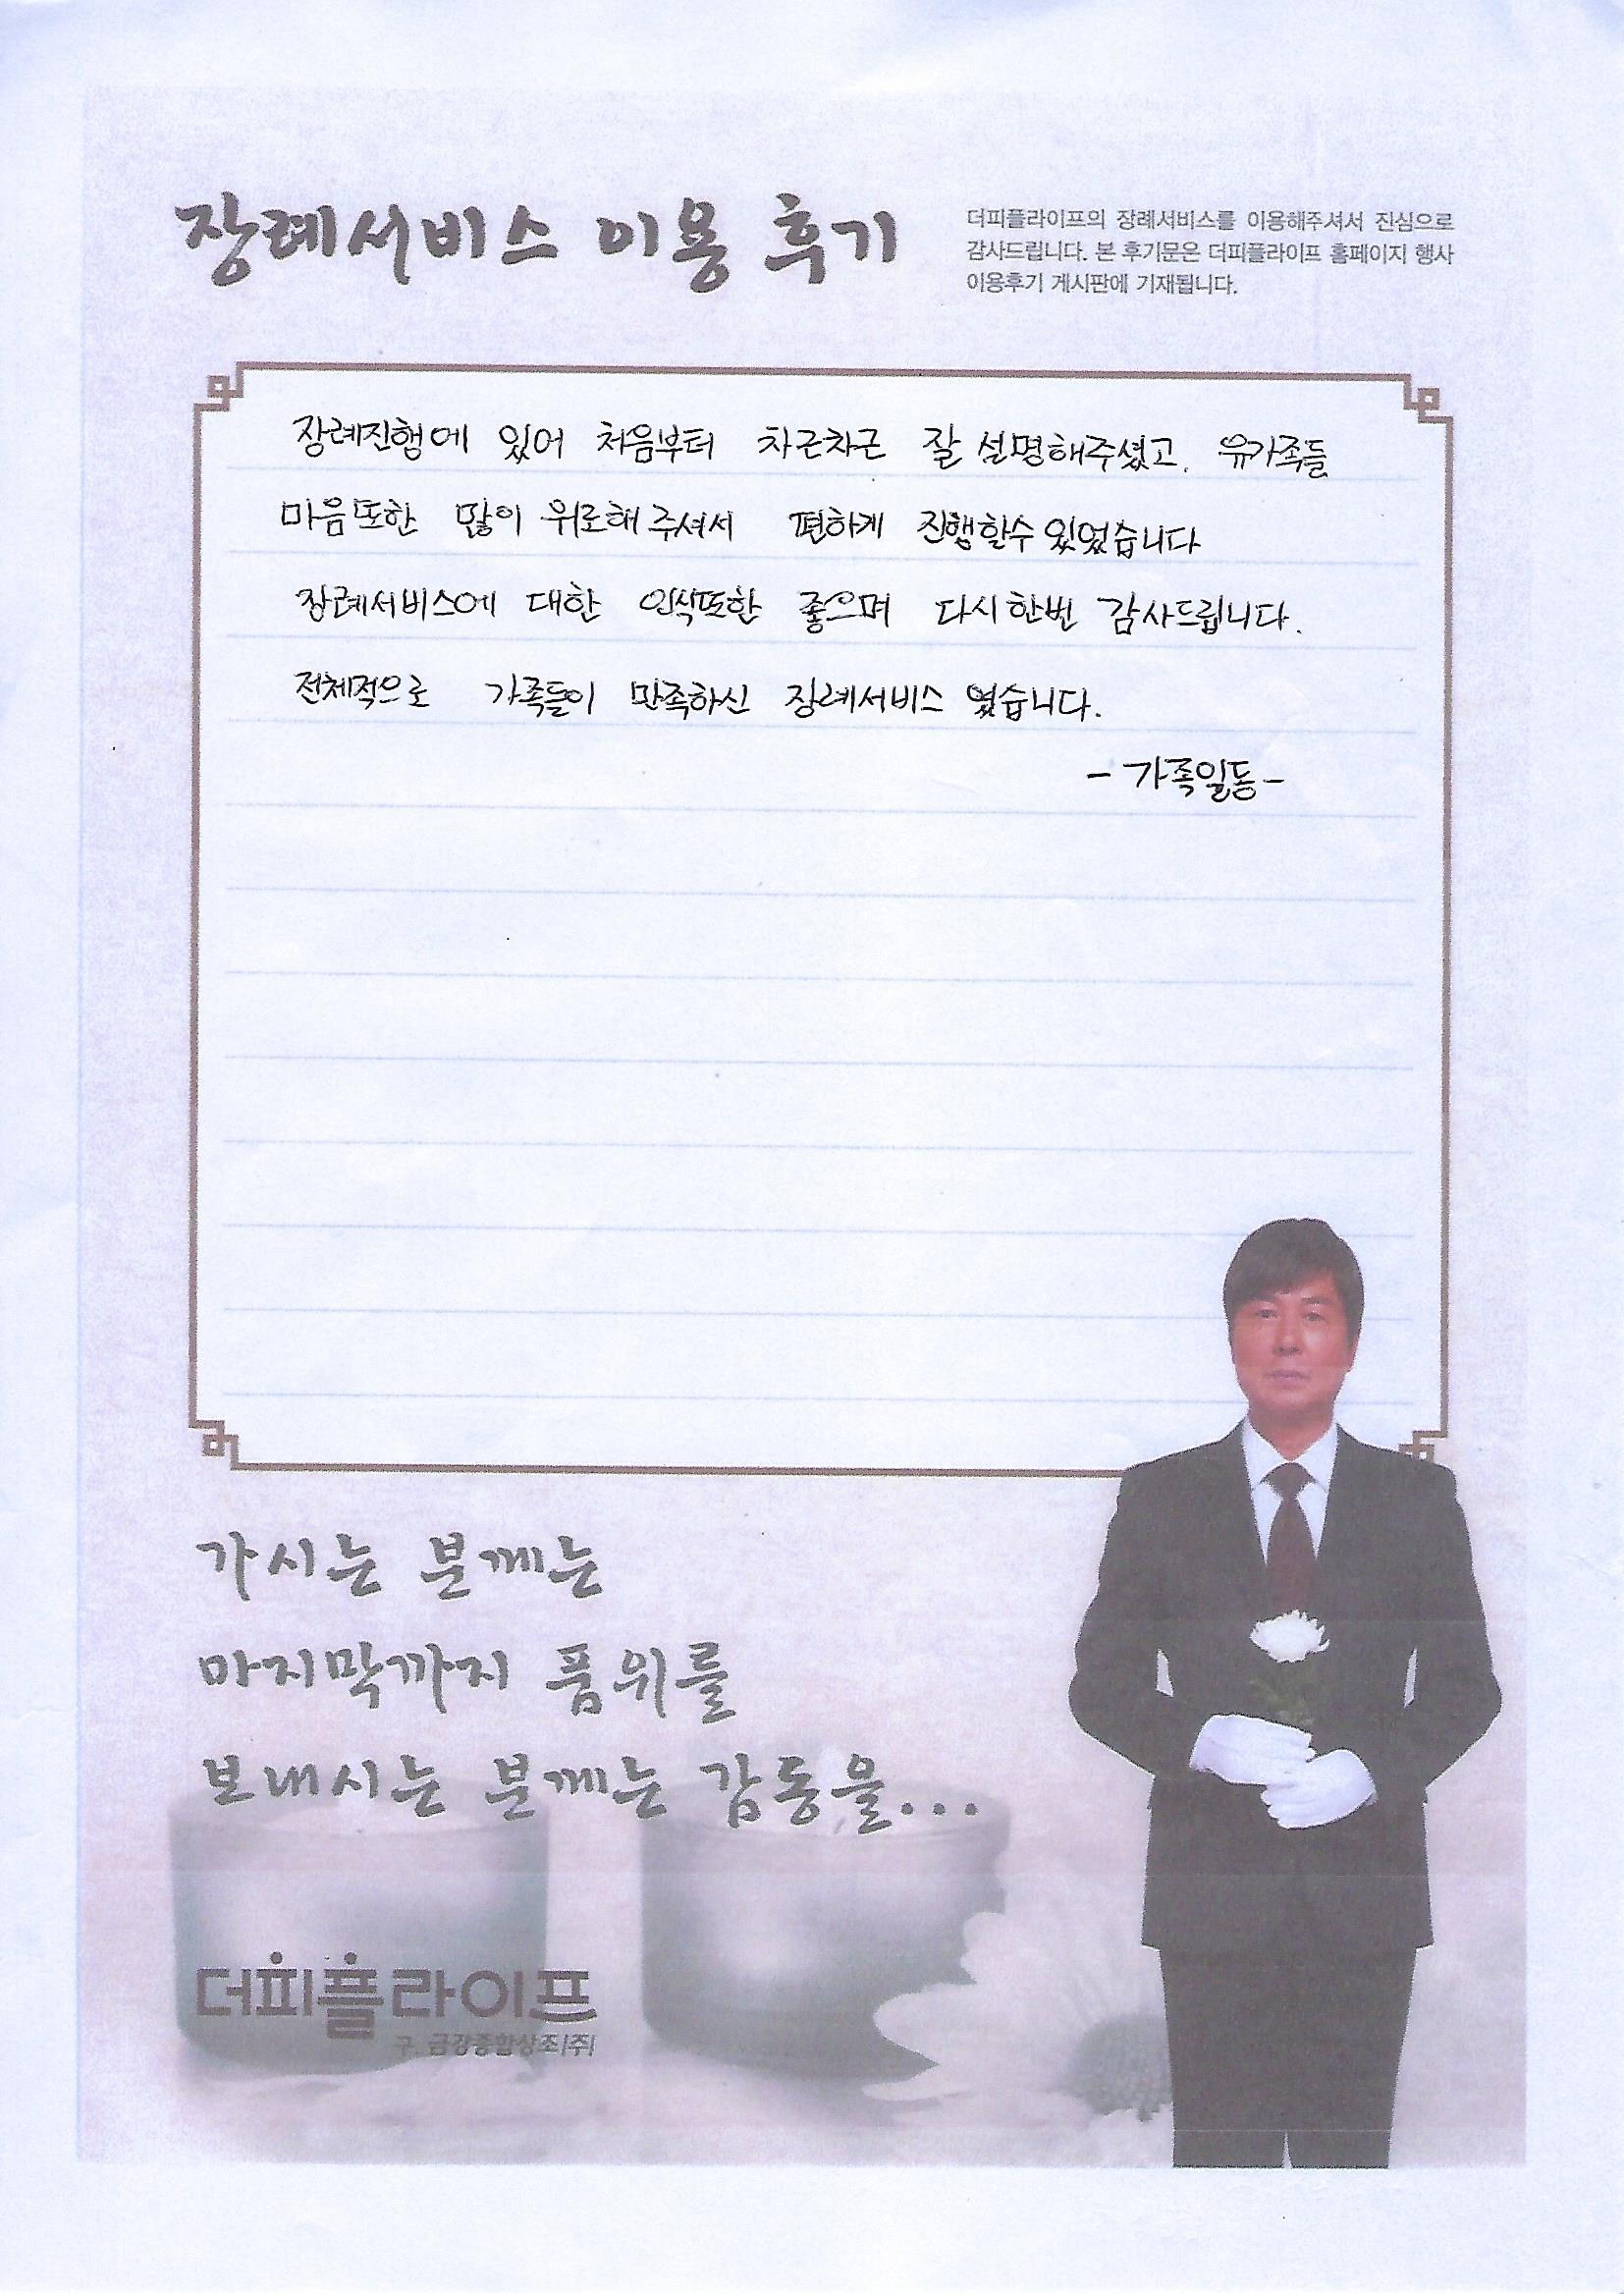 장례서비스 이용 후기
더피플라이프의 장례서비스를 이용해주셔서 진심으로
감사드립니다. 본 후기문은 더피플라이프 홈페이지 행사
이용후기 게시판에 기재됩니다.
장례진행에 있어 처음부터 차근차근 잘 설명해주셨고, 유가족들
마음또한 많이 위로해주셔서 편하게 진행할수 있었습니다
장례서비스에 대한 인식또한 좋으며 다시한번 감사드립니다.
전체적으로 가족들이 만족하신 장례서비스 였습니다.
- 가족일동 -
가시는 분께는
마지막까지 품위를
보내시는 분께는 감동을...
더피플라이프
구. 금강종합상조(주)